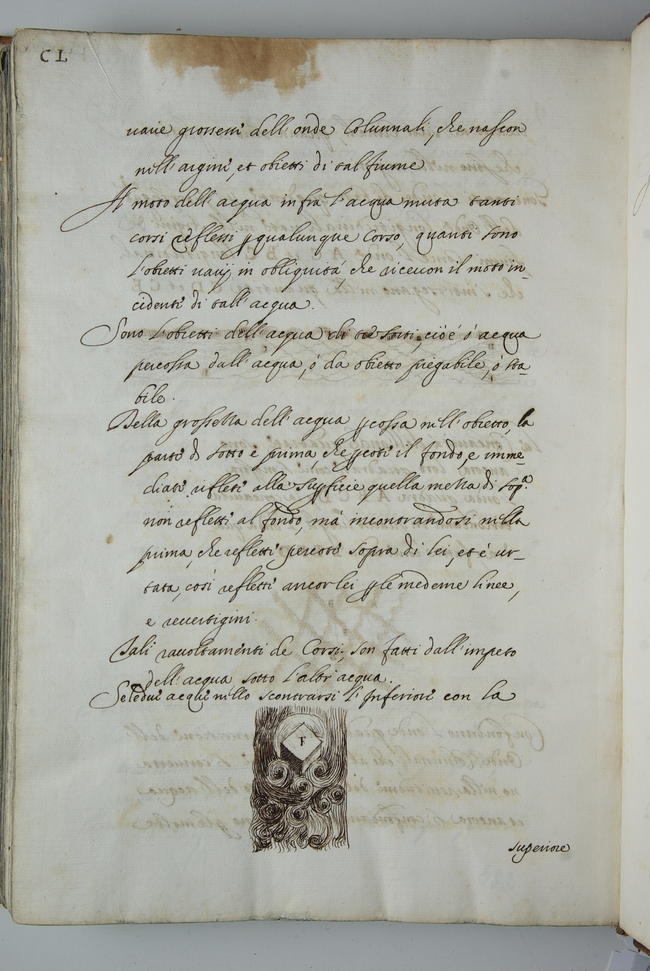 CL
varie grossezze dell'onde Colunnali, che nascon
nell'argini, et obietti di tal fiume
Il moto dell'acqua infra l'acqua muta tanti
corsi reflessi p qualunque Corso, quanti sono
l'obietti varij in obliquità, che ricevon il moto in-
cidente di tall'acqua.
Sono l'obietti dell'acqua di sorti, cioè ò acqua
percossa dall'acqua, ò da obietto piegabile, ò sta-
bile.
Della grossezza dell'acqua pcossa nell'obietto, la
parte di sotto è prima, che pcote il fondo, e imme-
diate reflete alla supficie quella metta di sopra
non reflette al fondo, mà incontrandosi nella
prima, che reflette percote sopra di lei, et è ur-
tata, così reflette ancor lei p le medeme linee,
e revertigini.
Tali ravoltamenti de Corsi, son fatti dall'impeto
dell'acqua sotto l'altr'acqua.
Se le due acque nello scontrarsi l'Inferiore con la
F
superiore